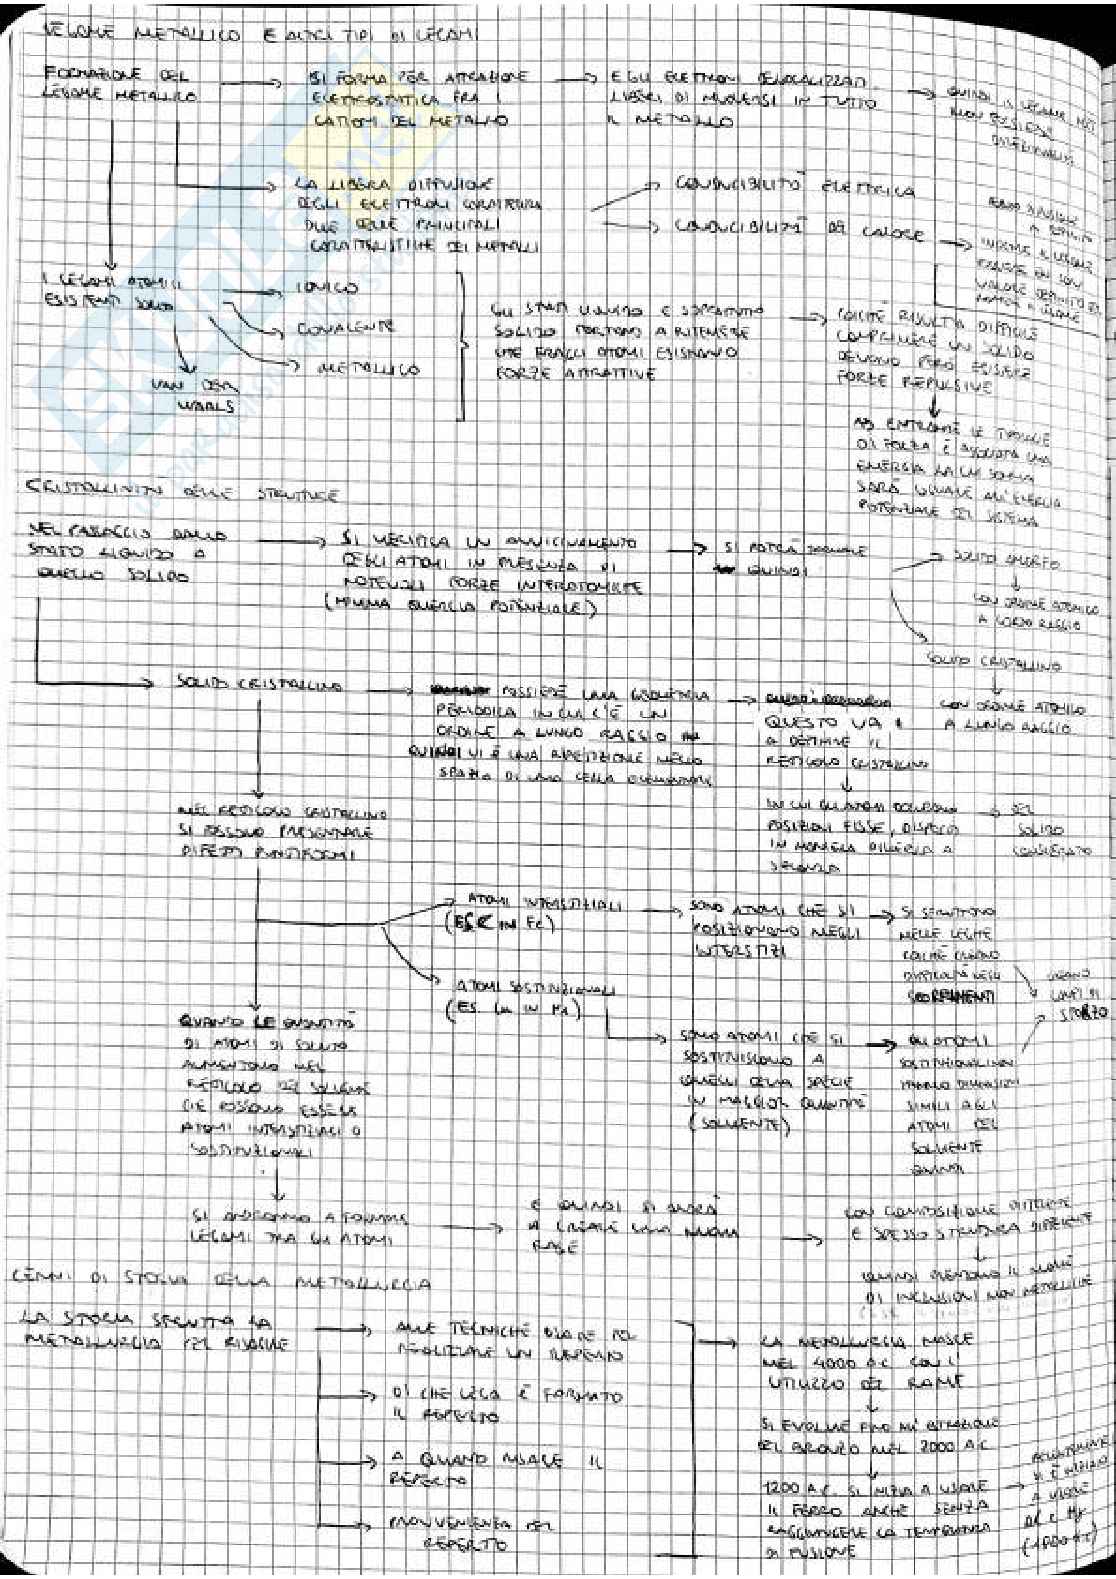 LEGAME METALLICO E ALTRI TIPI DI LEGAMI
FORMAZIONE DEL
LEGAME METALLICO
SI FORMA PER ATTRAZIONE
ELETTROSTATICA FRA I
CATIONI DEL METALLO
E GLI ELETTRONI DELOCALIZZATI
LIBERI DI MUOVERSI IN TUTTO
IL METALLO
QUINDI IL LEGAME MET.
NON POSSIEDE
DIREZIONALITÀ
LA LIBERA DIFFUSIONE
DEGLI ELETTRONI
DUE DELLE PRINCIPALI
CARATTERISTICHE DEI METALLI
CONDUCIBILITÀ ELETTRICA
CONDUCIBILITÀ DI CALORE
I LEGAMI ATOMICI
ESISTENTI SONO
IONICO
COVALENTE
METALLICO
VAN DER
WAALS
GLI STATI LIQUIDO E SOPRATTUTTO
SOLIDO PORTANO A RITENERE
CHE FRA GLI ATOMI ESISTANO
FORZE ATTRATTIVE
POICHÉ RISULTA DIFFICILE
COMPRIMERE UN SOLIDO
DEVONO PERÒ ESISTERE
FORZE REPULSIVE
AD ENTRAMBE LE TIPOLOGIE
DI FORZA È ASSOCIATA UNA
ENERGIA LA CUI SOMMA
SARÀ UGUALE ALL'ENERGIA
POTENZIALE DEL SISTEMA
CRISTALLINITÀ DELLE STRUTTURE
NEL PASSAGGIO DALLO
STATO LIQUIDO A
QUELLO SOLIDO
SI VERIFICA UN AVVICINAMENTO
DEGLI ATOMI IN PRESENZA DI
NOTEVOLI FORZE INTERATOMICHE
(MINIMA ENERGIA POTENZIALE)
SI POTRÀ FORMARE
QUINDI
SOLIDO AMORFO
CON ORDINE ATOMICO
A CORTO RAGGIO
SOLIDO CRISTALLINO
CON ORDINE ATOMICO
A LUNGO RAGGIO
SOLIDO CRISTALLINO
POSSIEDE UNA GEOMETRIA
PERIODICA IN CUI C'È UN
ORDINE A LUNGO RAGGIO
QUINDI VI È UNA RIPETIZIONE NELLO
SPAZIO DI UNA CELLA ELEMENTARE
QUESTO VA
A DEFINIRE IL
RETICOLO CRISTALLINO
IN CUI GLI ATOMI OCCUPANO
POSIZIONI FISSE, DISPOSTI
IN MANIERA DIVERSA A
SECONDA
DEL
SOLIDO
CONSIDERATO
NEL RETICOLO CRISTALLINO
SI POSSONO PRESENTARE
DIFETTI PUNTIFORMI
ATOMI INTERSTIZIALI
(ES. C IN Fe)
SONO ATOMI CHE SI
POSIZIONANO NEGLI
INTERSTIZI
SI SFRUTTANO
NELLE LEGHE
POICHÉ CREANO
DIFFICOLTÀ NEGLI
SCORRIMENTI
CREANO
CAMPI DI
SFORZO
ATOMI SOSTITUZIONALI
SONO ATOMI CHE SI
SOSTITUISCONO A
QUELLI DELLA SPECIE
IN MAGGIOR QUANTITÀ
(SOLVENTE)
GLI ATOMI
SOSTITUZIONALI
HANNO DIMENSIONI
SIMILI AGLI
ATOMI DEL
SOLVENTE
QUINDI
QUANDO LE QUANTITÀ
DI ATOMI DI SOLUTO
AUMENTANO NEL
RETICOLO DEL SOLVENTE
CHE POSSONO ESSERE
ATOMI INTERSTIZIALI O
SOSTITUZIONALI
SI ANDRANNO A FORMARE
LEGAMI TRA GLI ATOMI
E QUINDI SI ANDRÀ
A CREARE UNA NUOVA
FASE
CON COMPOSIZIONE DIFFERENTE
E SPESSO STRUTTURA DIFFERENTE
QUINDI PRENDONO IL NOME
DI INCLUSIONI NON METALLICHE
CENNI DI STORIA DELLA METALLURGIA
LA STORIA SFRUTTA LA
METALLURGIA PER RISALIRE
ALLE TECNICHE USATE PER
REALIZZARE UN REPERTO
DI CHE LEGA È FORMATO
IL REPERTO
A QUANDO RISALE IL
REPERTO
PROVENIENZA DEL
REPERTO
LA METALLURGIA NASCE
NEL 4000 A.C. CON L'
UTILIZZO DEL RAME
SI EVOLVE FINO ALL'ESTRAZIONE
DEL BRONZO NEL 2000 A.C.
1200 A.C. SI INIZIA A USARE
IL FERRO ANCHE SENZA
RAGGIUNGERE LA TEMPERATURA
DI FUSIONE
SI È INIZIATO
A USARE
Al e Mg